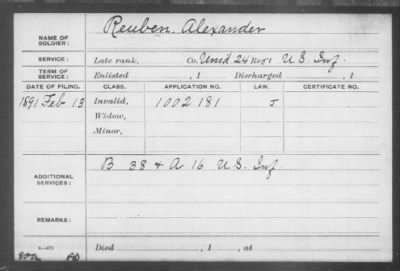 NAME OF SOLDIER: Reuben Alexander
SERVICE: Late rank, Co. Unsd 24 Reg't U. S. Inf.
TERM OF SERVICE: Enlisted , 1 Discharged , 1
DATE OF FILING. CLASS. APPLICATION NO. LAW. CERTIFICATE NO.
1891 Feb 13 Invalid, 1002 181 J
Widow,
Minor,
ADDITIONAL SERVICES: B 38 & A 16 U. S. Inf
REMARKS:
Died , 1 , at